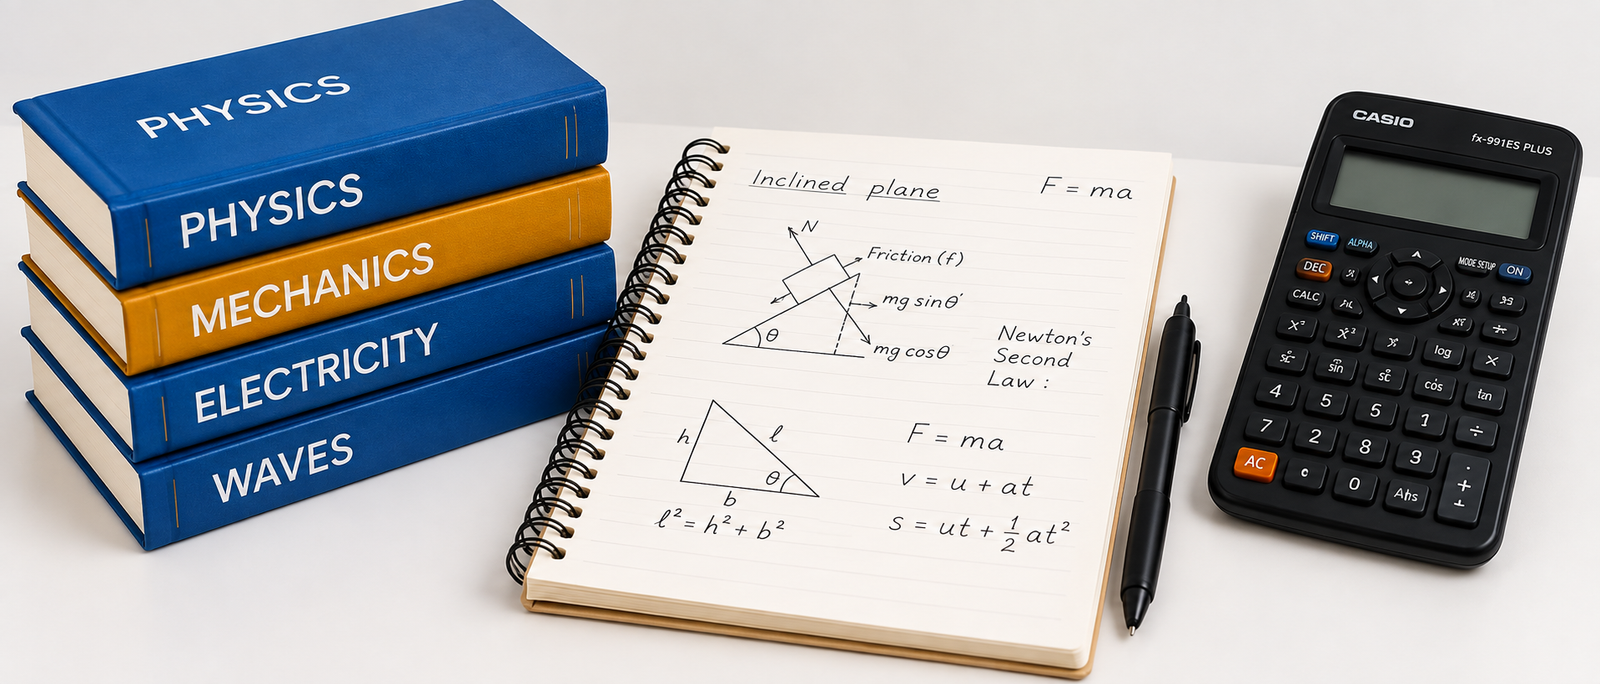 PHYSICS
PHYSICS
MECHANICS
ELECTRICITY
WAVES
Inclined plane
F = ma
N
Friction (f)
mg sinθ'
θ
mg cosθ
Newton's
Second
Law :
h
l
θ
b
ℓ² = h² + b²
F = ma
v = u + at
s = ut + 1/2 at²
CASIO
fx-991ES PLUS
SHIFT
ALPHA
MODE SETUP
ON
DEC
CALC
log
×
cos
4
5
5
1
÷
7
2
8
3
AC
0
+